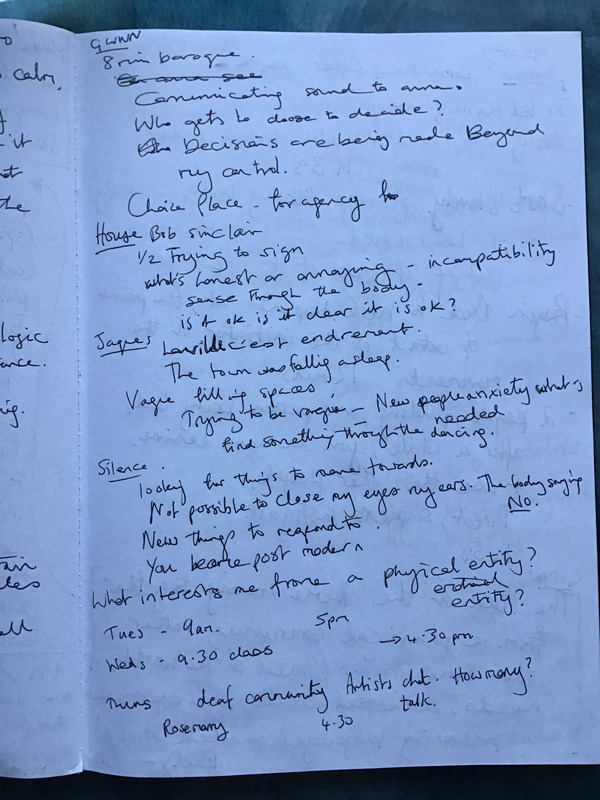 GWNN
8 min baroque.
Communicating sound to anna.
Who gets to choose to decide?
Decisions are being made Beyond
my control.
Choice Place - for agency
House Bob Sinclair
1/2 Trying to sign
what's honest or annoying - incompatibility
sense through the body -
is it ok is it clear it is ok?
Jaques c'est endrement.
The town was falling asleep.
Vague filling spaces
Trying to be vague - New people anxiety what's
needed
find something through the dancing.
Silence.
looking for things to move towards.
Not possible to close my eyes my ears. The body saying
No.
New things to respond to
You became post modern
What interests me from a physical entity?
entity?
Tues - 9am. 5pm
Weds - 9.30 class → 4.30 pm
Thurs deaf community Artists chat. How many?
talk.
Rosemary 4.30
o
calm,
it
the
logic
ance.
ng.
ain
all